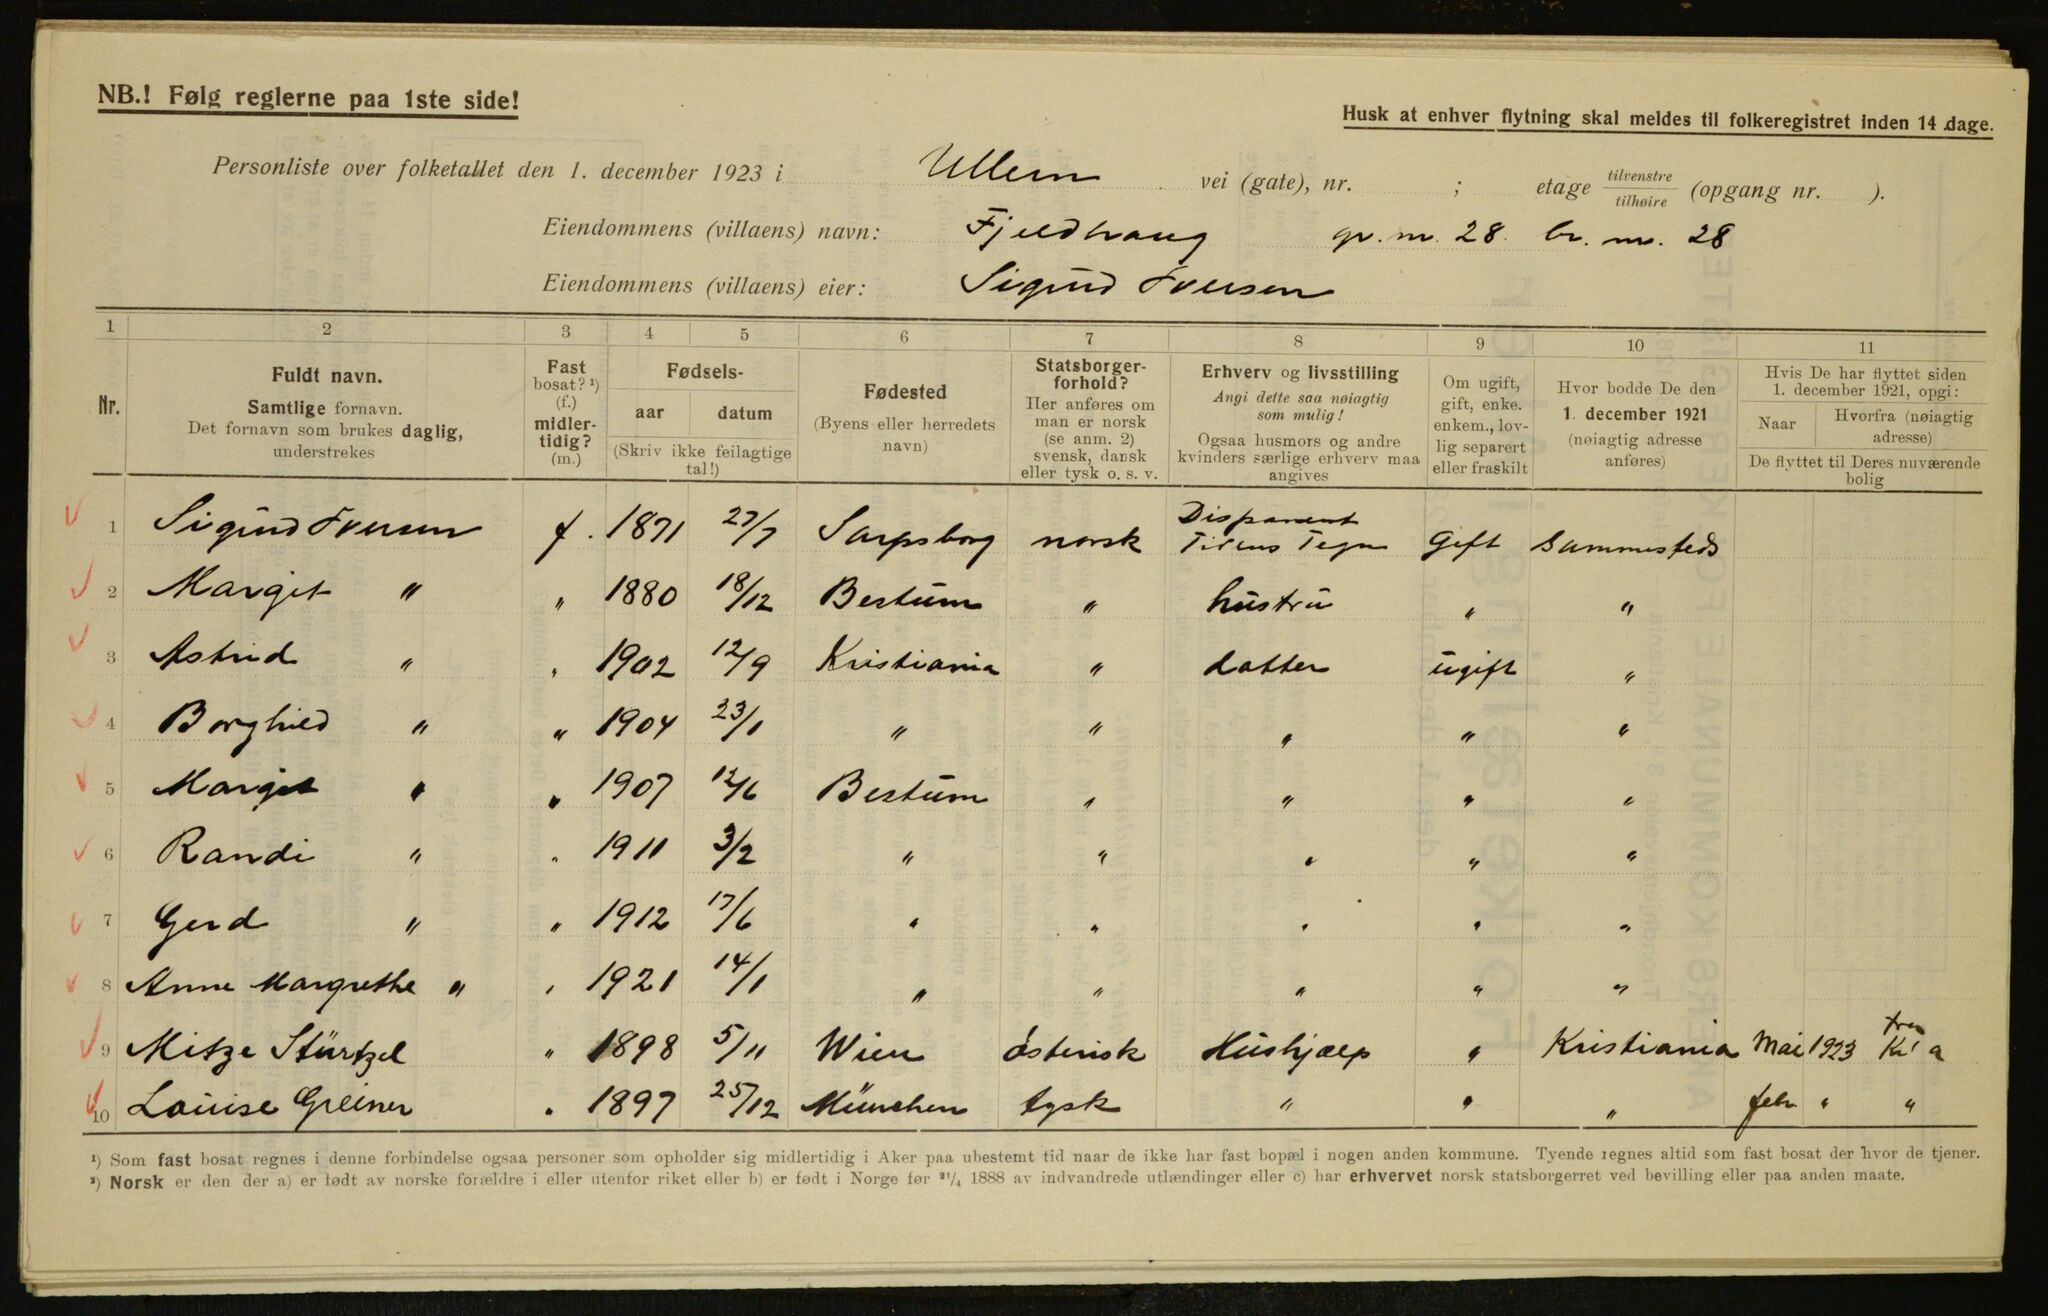 NB.! Følg reglerne paa 1ste side!
Husk at enhver flytning skal meldes til folkeregistret inden 14 dage.
Personliste over folketallet den 1. december 1923 i Ullern vei (gate), nr. ; etage tilvenstre / tilhøire (opgang nr. ).
Eiendommens (villaens) navn: Fjeldhaug gr. nr. 28. br. nr. 28
Eiendommens (villaens) eier: Sigurd Iversen
1 2 3 4 5 6 7 8 9 10 11
Nr.
Fuldt navn.
Samtlige fornavn.
Det fornavn som brukes daglig,
understrekes
Fast
bosat? ¹)
(f.)
midler-
tidig?
(m.)
Fødsels-
aar datum
(Skriv ikke feilagtige
tal!)
Fødested
(Byens eller herredets
navn)
Statsborger-
forhold?
Her anføres om
man er norsk
(se anm. 2)
svensk, dansk
eller tysk o. s. v.
Erhverv og livsstilling
Angi dette saa nøiagtig
som mulig!
Ogsaa husmors og andre
kvinders særlige erhverv maa
angives
Om ugift,
gift, enke.
enkem., lov-
lig separert
eller fraskilt
Hvor bodde De den
1. december 1921
(nøiagtig adresse
anføres)
Hvis De har flyttet siden
1. december 1921, opgi:
Naar Hvorfra (nøiagtig
adresse)
De flyttet til Deres nuværende
bolig
1 Sigurd Iversen f. 1871 27/7 Sarpsborg norsk Disponent Titens Tegn Gift Sammesteds
2 Margit " " 1880 18/12 Bestum " hustru " "
3 Astrid " " 1902 12/9 Kristiania " datter ugift "
4 Borghild " " 1904 23/1 " " " " "
5 Margit " " 1907 12/6 Bestum " " " "
6 Randi " " 1911 3/2 " " " " "
7 Gerd " " 1912 17/6 " " " " "
8 Anne Margrethe " " 1921 14/1 " " " " "
9 Mitze Stürtzel " 1898 5/11 Wien østerisk Hushjælp " Kristiania Mai 1923 fra Kr'a
10 Louise Greiner " 1897 25/12 München tysk " " " febr " "
¹) Som fast bosat regnes i denne forbindelse ogsaa personer som opholder sig midlertidig i Aker paa ubestemt tid naar de ikke har fast bopæl i nogen anden kommune. Tyende regnes altid som fast bosat der hvor de tjener.
²) Norsk er den der a) er født av norske forældre i eller utenfor riket eller b) er født i Norge før ²¹/₄ 1888 av indvandrede utlændinger eller c) har erhvervet norsk statsborgerret ved bevilling eller paa anden maate.